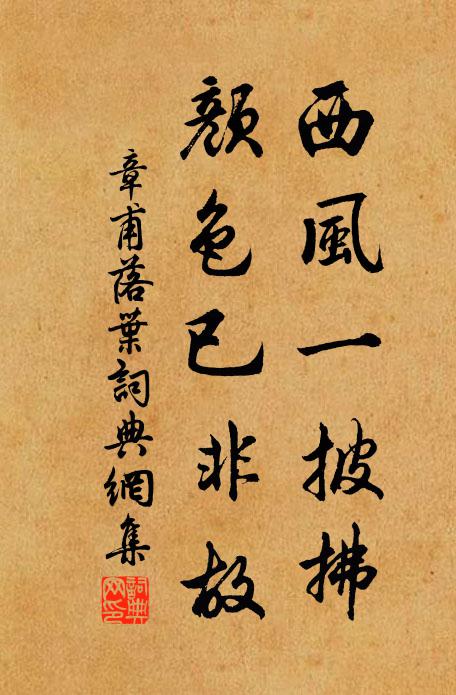 西風一披拂
顏色已非故
章甫落葉詞典網集
詞典網印